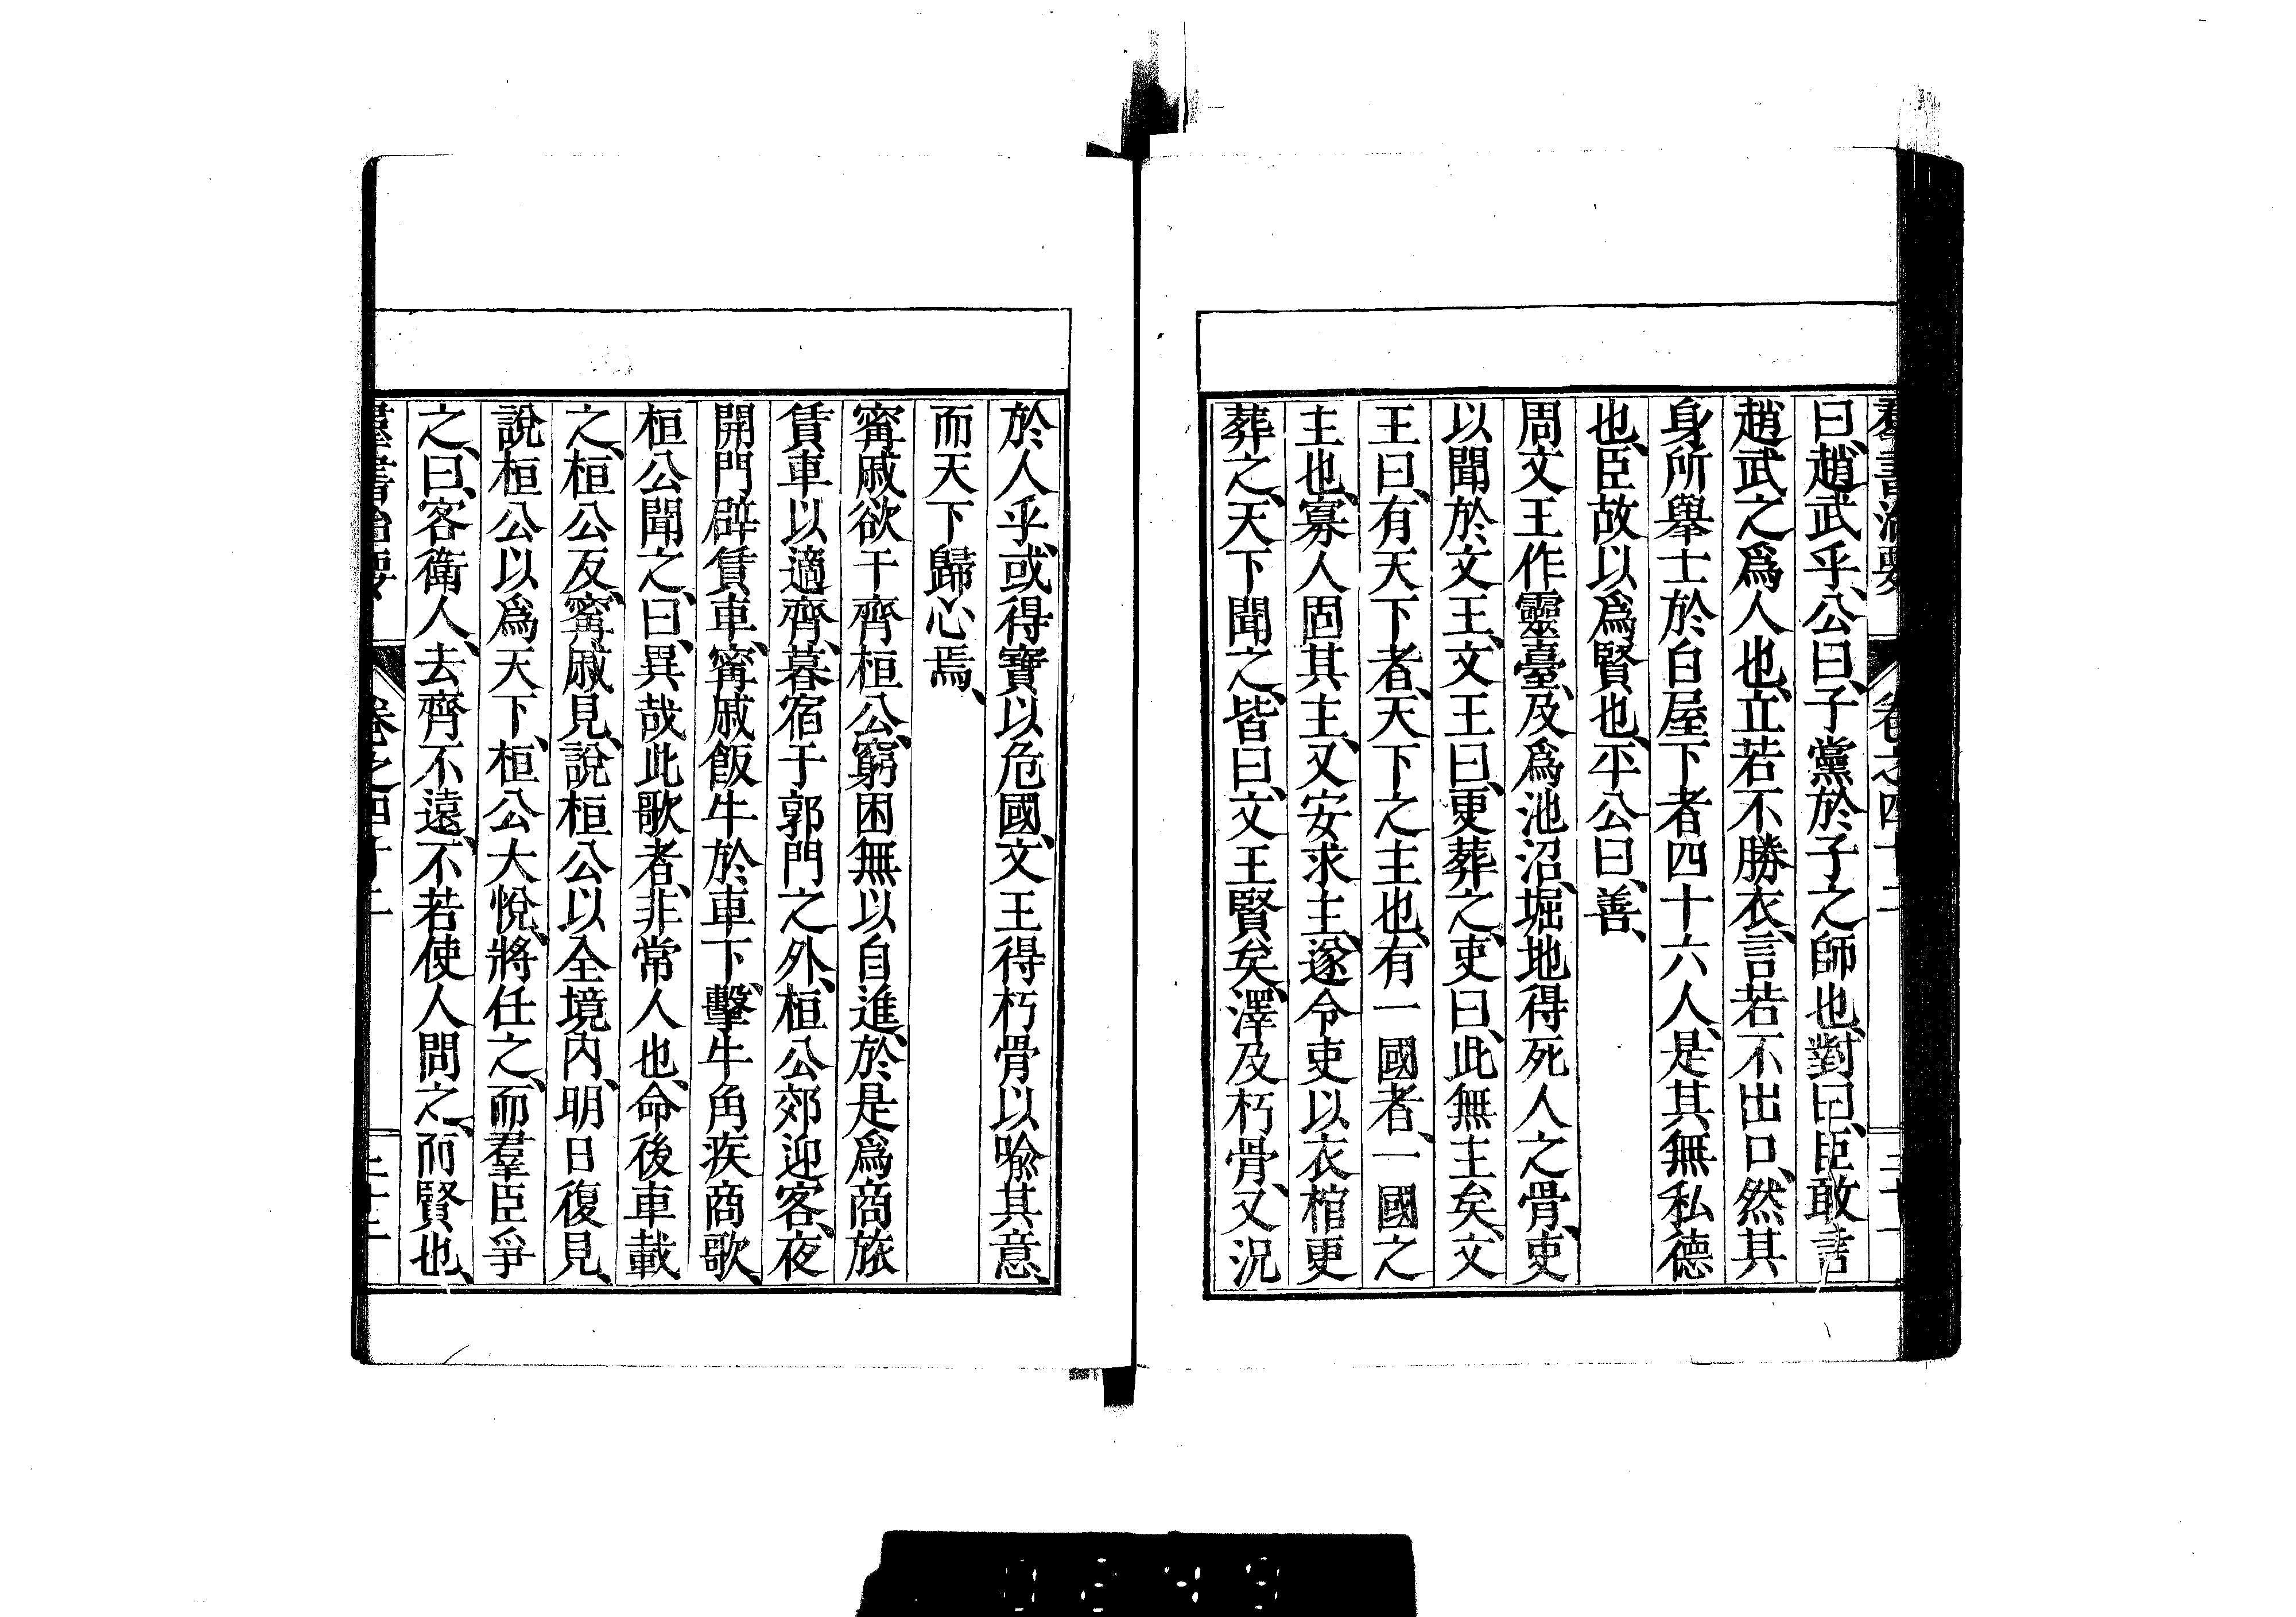 羣書治要 卷之四十二
曰、趙武乎、公曰、子黨於子之師也、對曰、臣敢言
趙武之爲人也、立若不勝衣、言若不出口、然其
身所舉士於白屋下者四十六人、是其無私德
也、臣故以爲賢也、平公曰、善、
周文王作靈臺、及爲池沼、堀地得死人之骨、吏
以聞於文王、文王曰、更葬之、吏曰、此無主矣、文
王曰、有天下者、天下之主也、有一國者、一國之
主也、寡人固其主、又安求主、遂令吏以衣棺更
葬之、天下聞之、皆曰、文王賢矣、澤及朽骨、又況
於人乎、或得寶以危國、文王得朽骨以喩其意、
而天下歸心焉、
甯戚欲干齊桓公、窮困無以自進、於是爲商旅
賃車以適齊、暮宿于郭門之外、桓公郊迎客、夜
開門、辟賃車、甯戚飯牛於車下、擊牛角疾商歌、
桓公聞之、曰、異哉此歌者、非常人也、命後車載
之、桓公反、甯戚見、說桓公以全境內、明日復見、
說桓公以爲天下、桓公大悅、將任之、而羣臣爭
之、曰、客衞人、去齊不遠、不若使人問之、而賢也、
羣書治要 卷之四十二